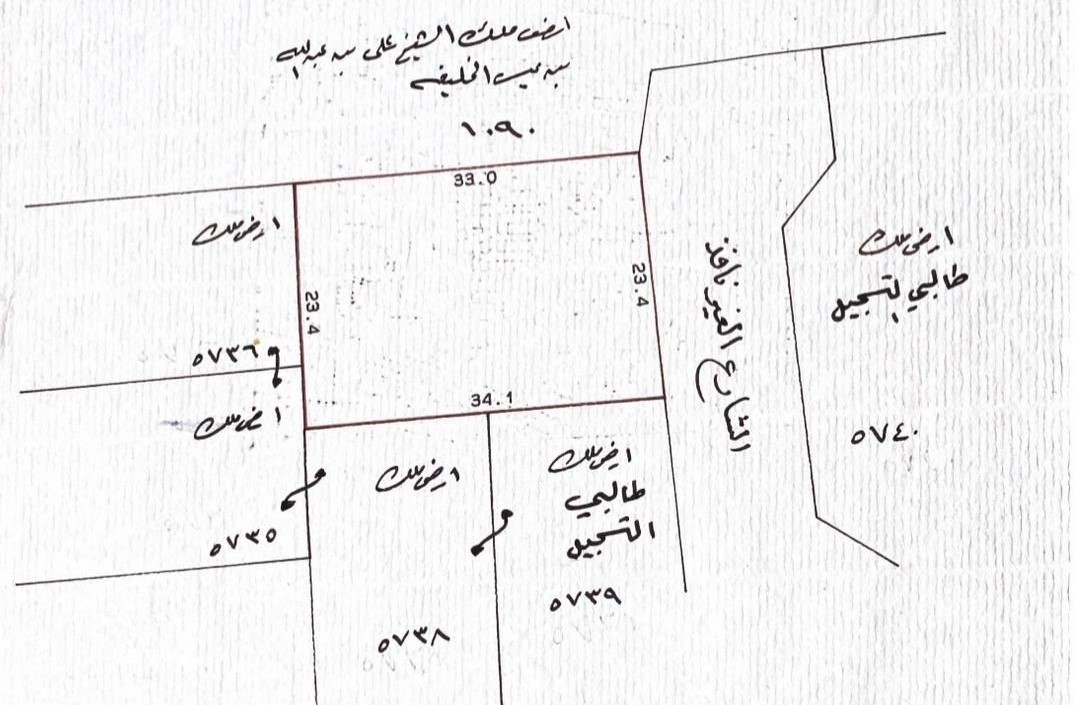 ارض ملك الشيخ علي بن عبدالله
بن عيسى الخليفه
١٠٩٠
33.0
ارض ملك
23.4
23.4
الشارع الغير نافذ
ارض ملك
طالبي التسجيل
٥٧٣٦
34.1
ارض ملك
٥٧٤٠
ارض ملك
ارض ملك
طالبي
التسجيل
٥٧٣٥
٥٧٣٩
٥٧٣٨